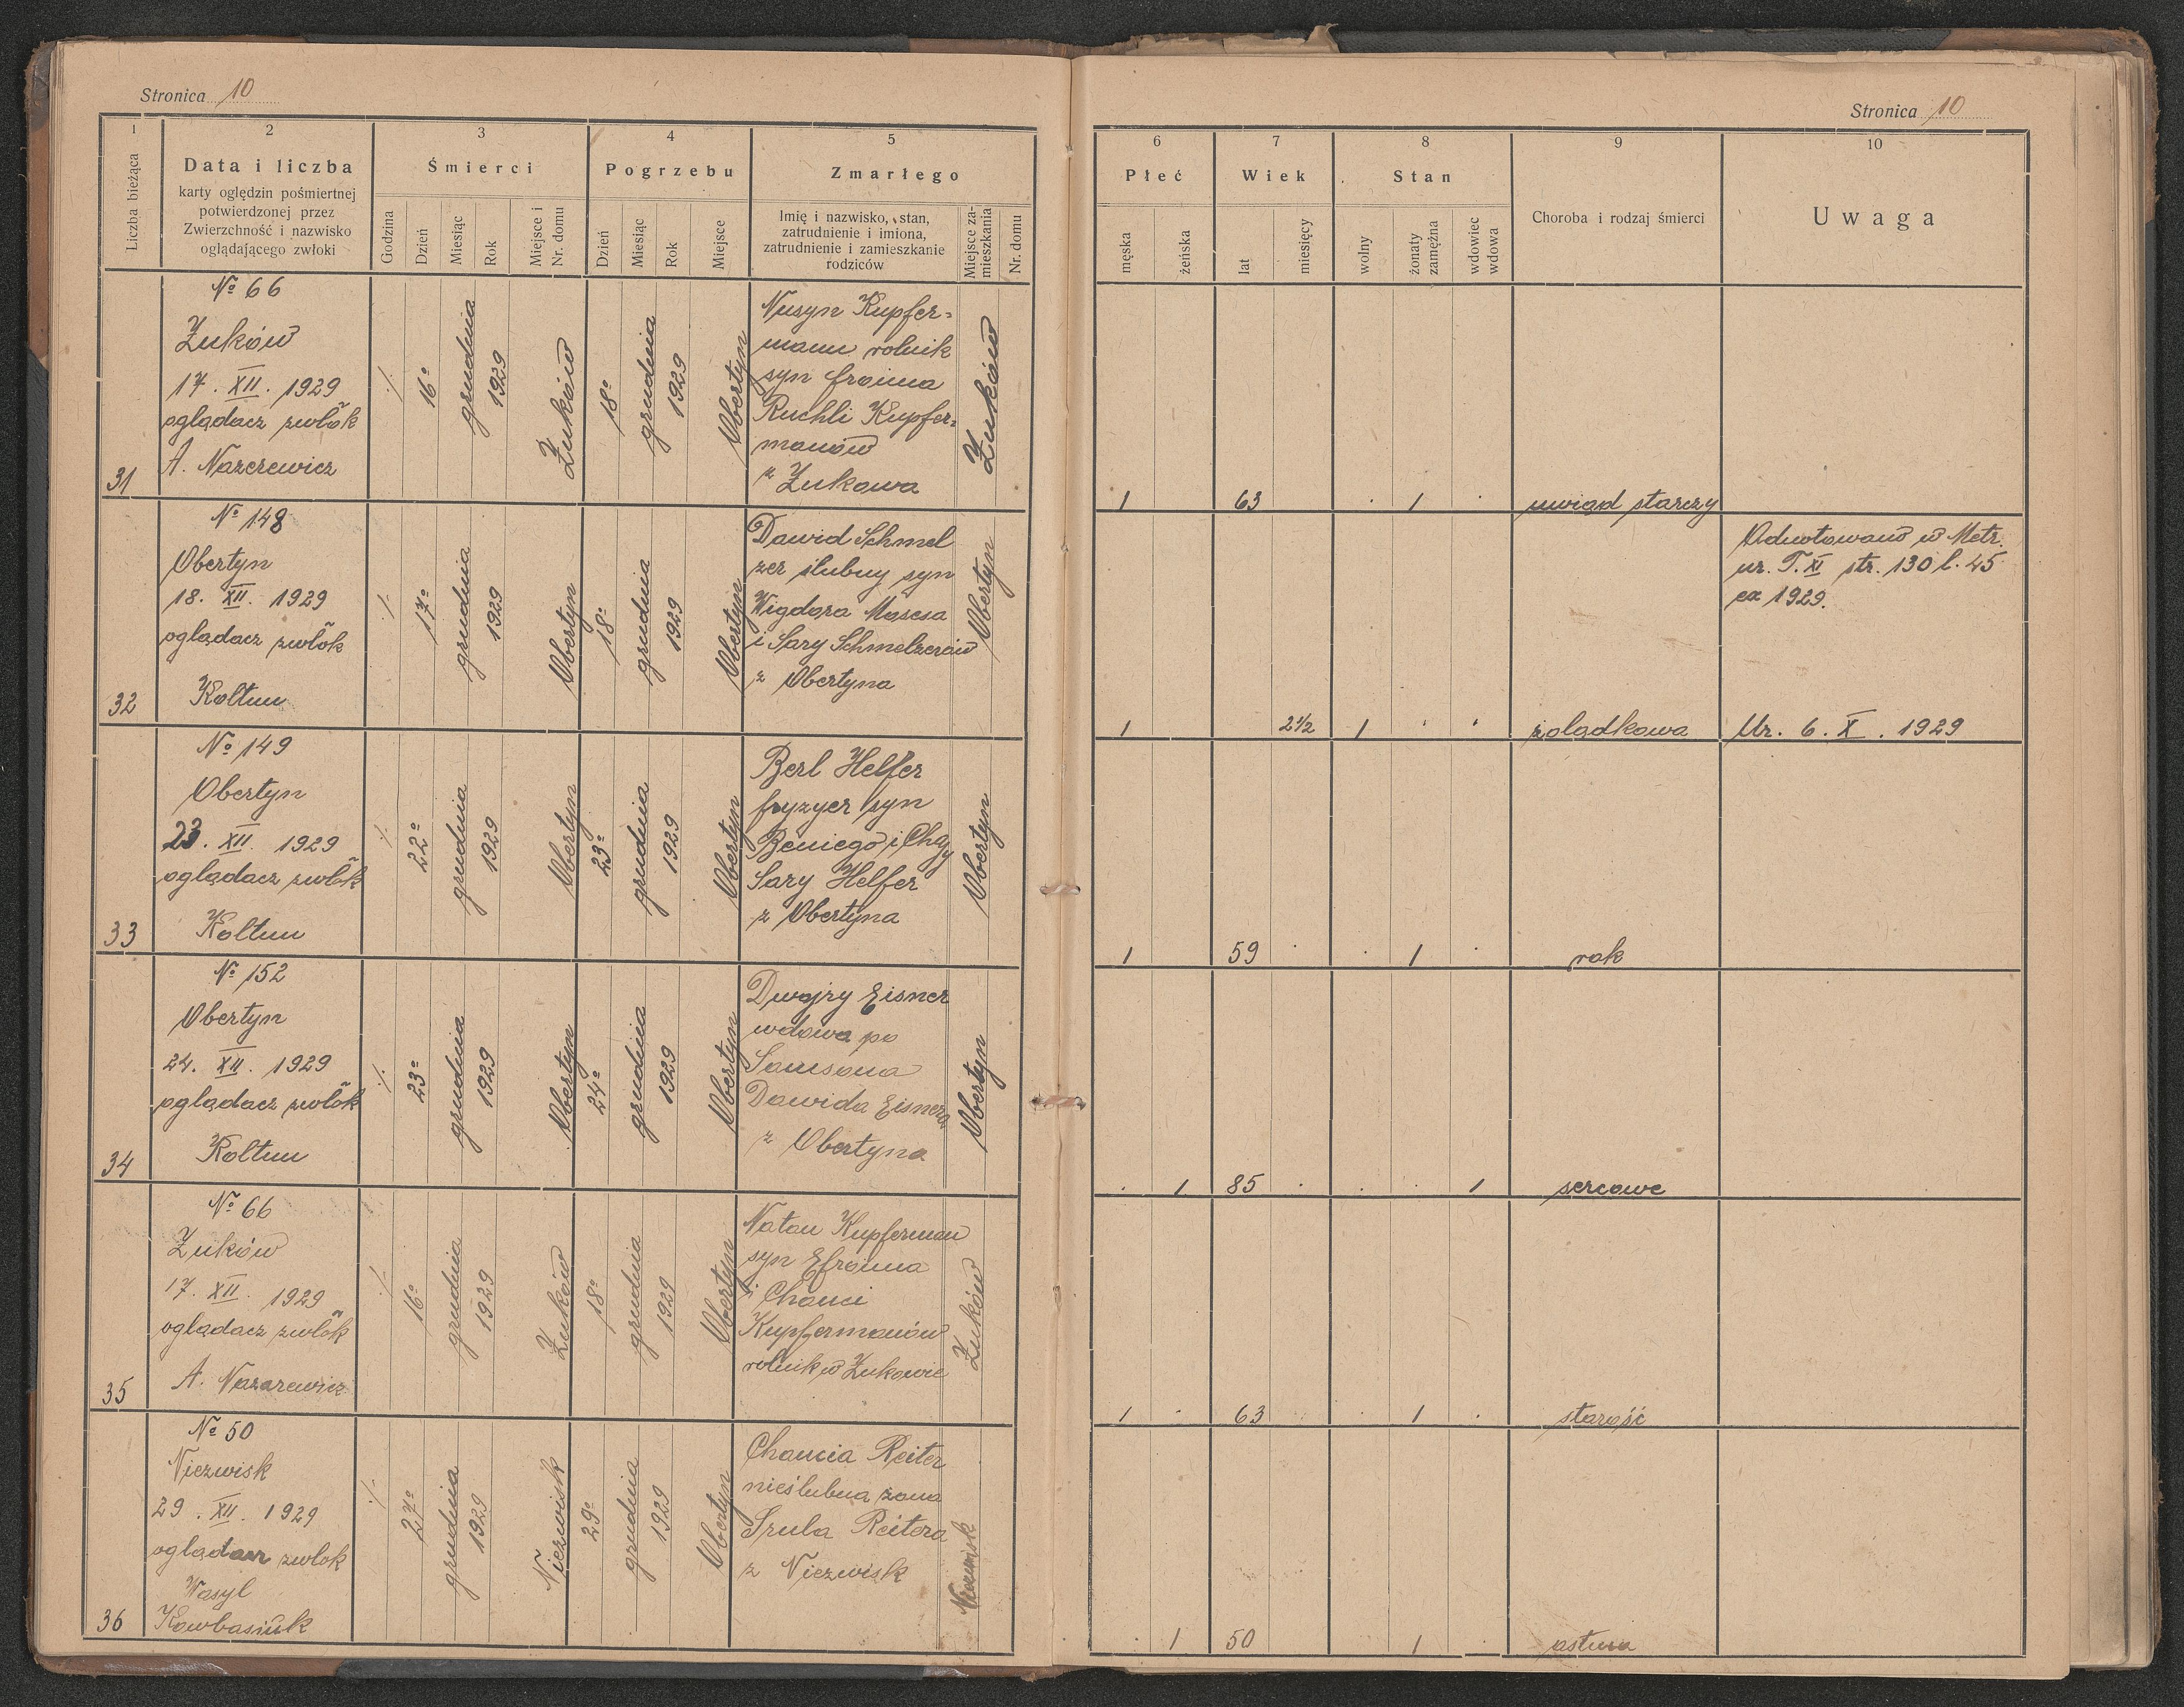 Stronica 10
Stronica 10
1 2 3 4 5
Liczba bieżąca
Data i liczba
karty oględzin pośmiertnej
potwierdzonej przez
Zwierzchność i nazwisko
oglądającego zwłoki
Śmierci
Godzina
Dzień
Miesiąc
Rok
Miejsce i
Nr. domu
Pogrzebu
Dzień
Miesiąc
Rok
Miejsce
Zmarłego
Imię i nazwisko, stan,
zatrudnienie i imiona,
zatrudnienie i zamieszkanie
rodziców
Miejsce za-
mieszkania
Nr. domu
6 7 8 9 10
Płeć
męska
żeńska
Wiek
lat
miesięcy
Stan
wolny
żonaty
zamężna
wdowiec
wdowa
Choroba i rodzaj śmierci
Uwaga
31
No 66
Żuków
17. XII. 1929
oglądacz zwłok
A. Nazerewicz
16o
grudnia
1929
Żuków
18o
grudnia
1929
Obertyn
Nusyn Kupfer-
mann rolnik
syn froima
Ruchli Kupfer-
manów
z Żukowa
Żuków
1 63 1 uwiąd starczy
32
No 148
Obertyn
18. XII. 1929
oglądacz zwłok
Koltun
17o
grudnia
1929
Obertyn
18o
grudnia
1929
Obertyn
Dawid Schmel
zer ślubny syn
Wigdora Mosesa
i Sary Schmelzerów
z Obertyna
Obertyn
1 2 1/2 1 żolądkowa
Odnotowano w Metr.
ur. T. XI str. 130 l. 45
ex 1929.
Ur. 6. X. 1929
33
No 149
Obertyn
23. XII. 1929
oglądacz zwłok
Koltun
22o
grudnia
1929
Obertyn
23o
grudnia
1929
Obertyn
Berl Helfer
fryzyer syn
Beniego i Chay
Sary Helfer
z Obertyna
Obertyn
1 59 1 rak
34
No 152
Obertyn
24. XII. 1929
oglądacz zwłok
Koltun
23o
grudnia
1929
Obertyn
24o
grudnia
1929
Obertyn
Dwojry Eisner
wdowa po
Samsona
Dawida Eisnera
z Obertyna
Obertyn
1 85 1 sercowe
35
No 66
Żuków
17. XII. 1929
oglądacz zwłok
A. Nazarewicz
16o
grudnia
1929
Żuków
18o
grudnia
1929
Obertyn
Natan Kupferman
syn Efroima
i Chanci
Kupfermanów
rolnik w Żukowie
Żuków
1 63 1 starość
36
No 50
Niezwisk
29. XII. 1929
oglądacz zwłok
Wasyl
Kowbasiuk
27o
grudnia
1929
Niezwisk
29o
grudnia
1929
Obertyn
Chancia Reiter
nieślubna żona
Srula Reitera
z Niezwisk
Niezwisk
1 50 1 astma